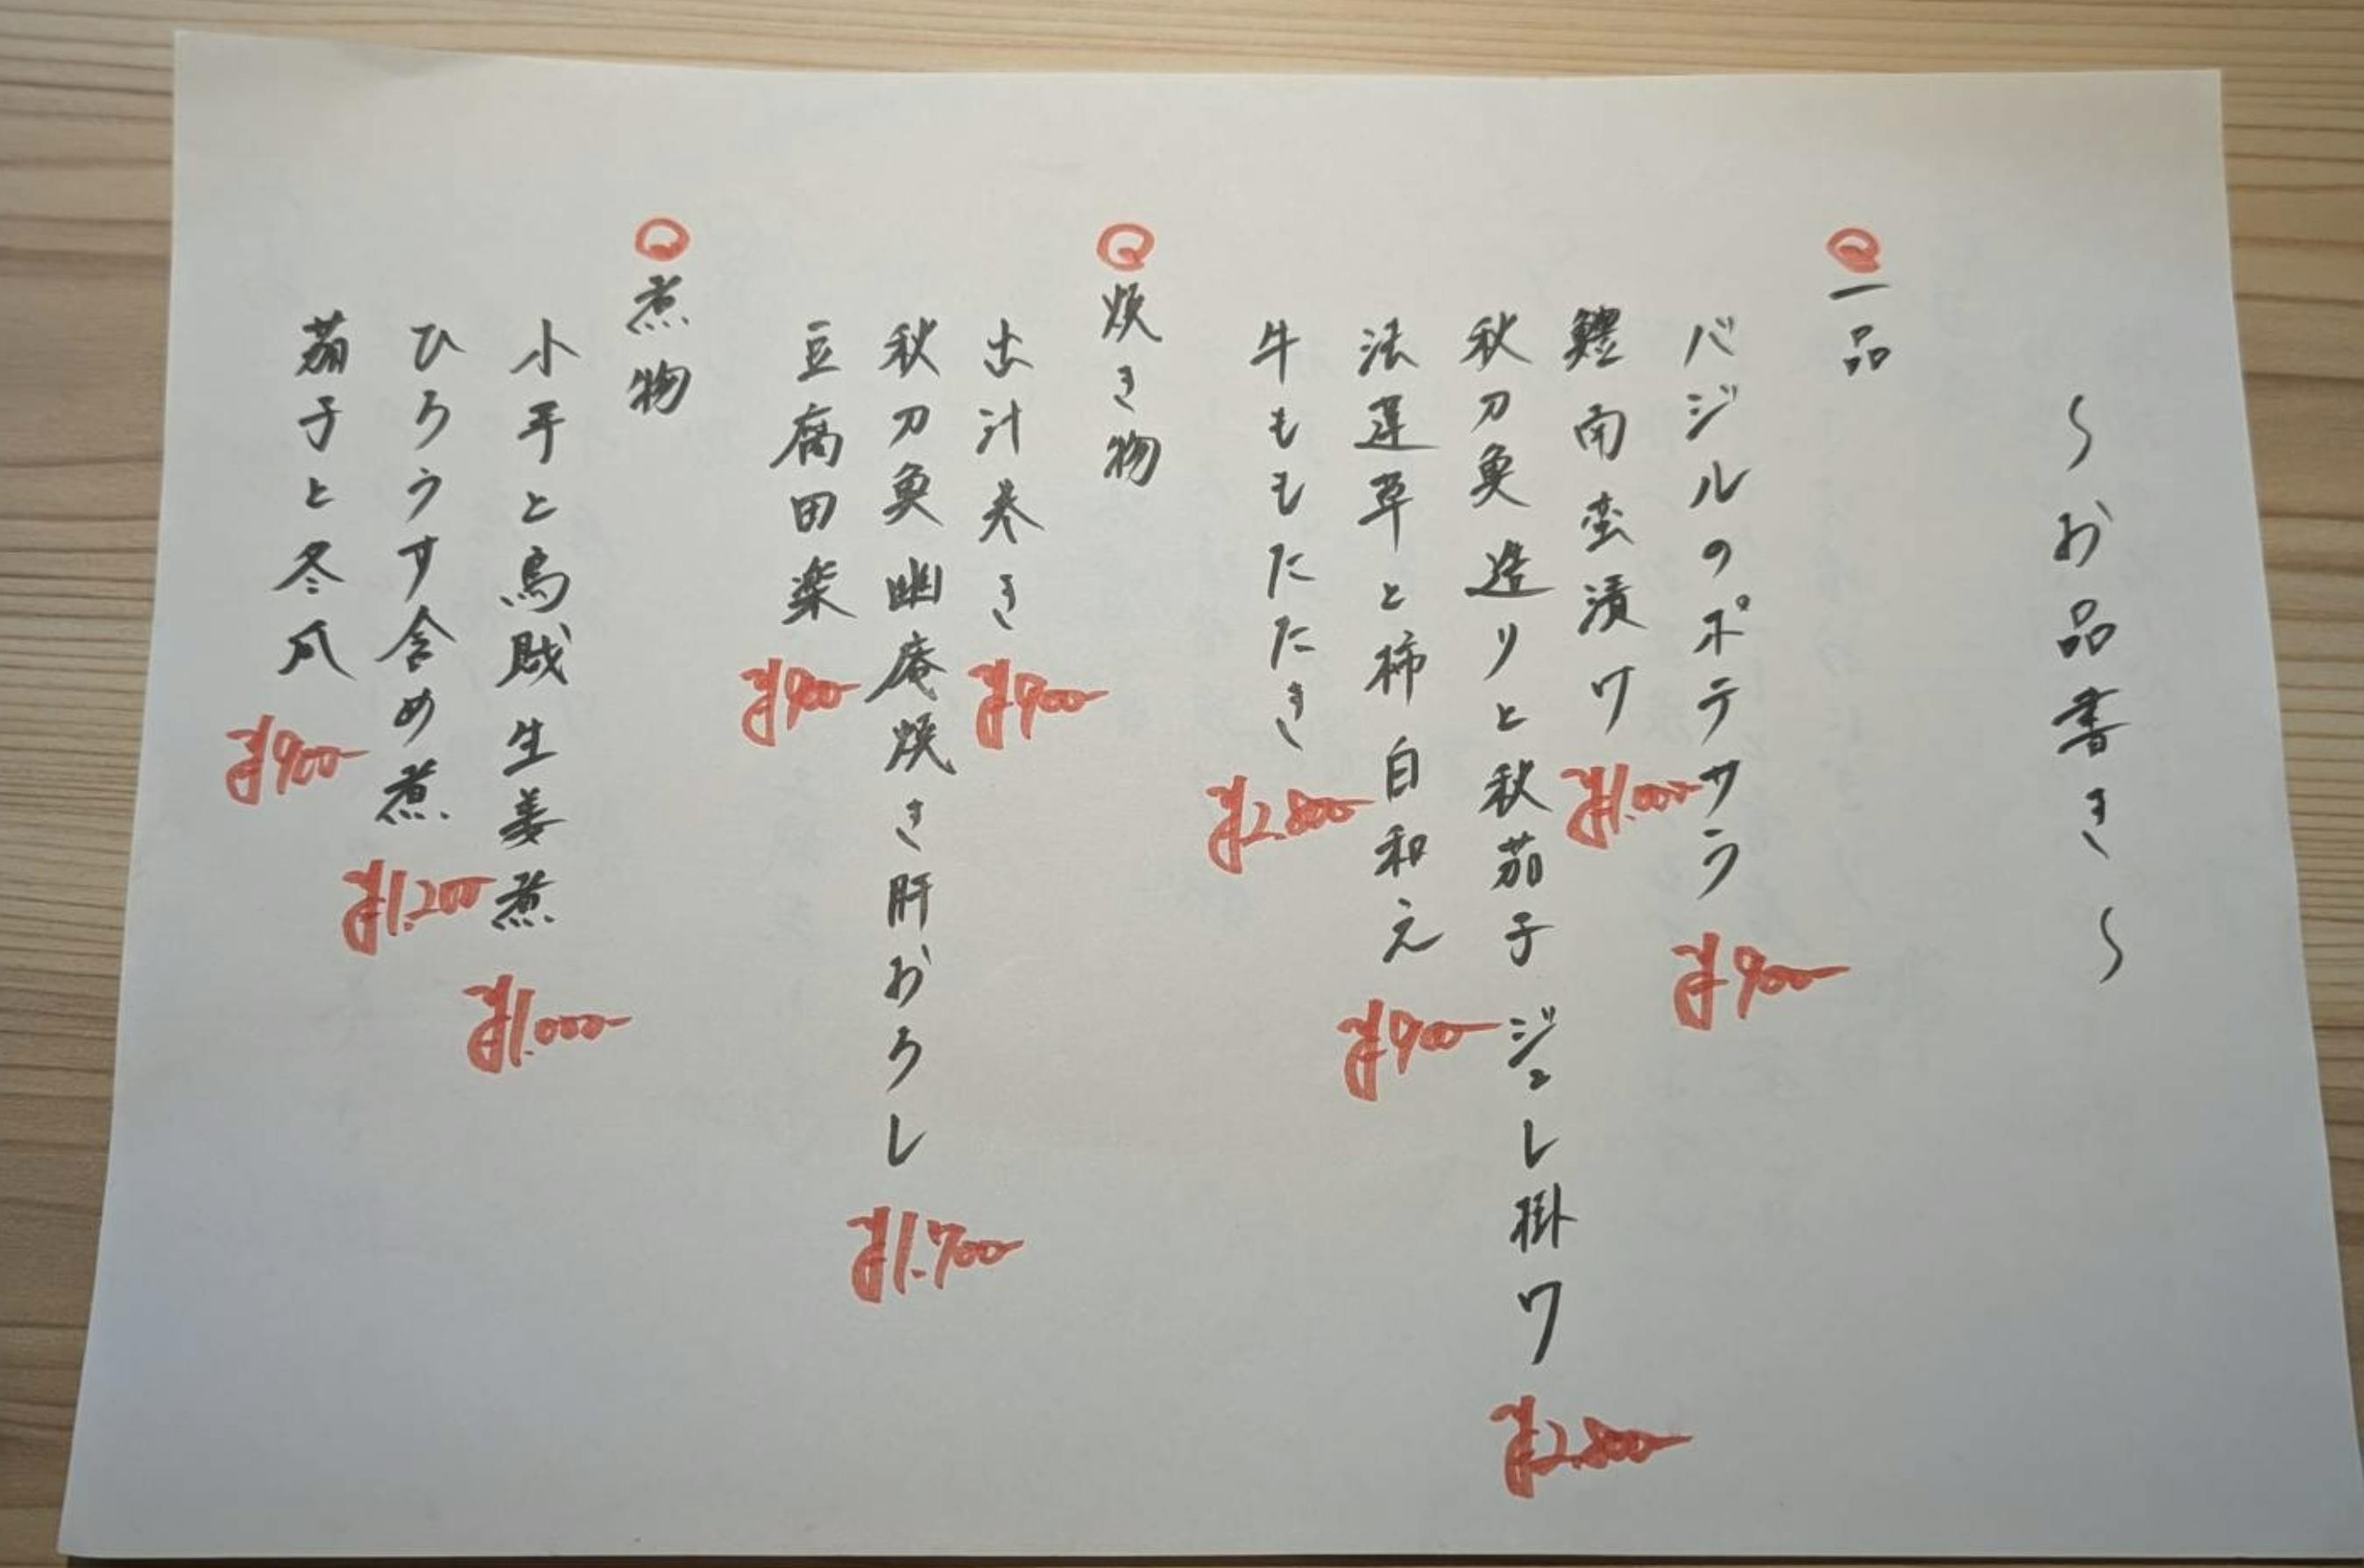 ～お品書き～
一品
バジルのポテサラ ¥900
鱧南蛮漬け ¥1.000
秋刀魚造りと秋茄子ジュレ掛け ¥2.800
法蓮草と柿白和え ¥900
牛ももたたき ¥2.800
焼き物
出汁巻き ¥900
秋刀魚幽庵焼き肝おろし ¥1.700
豆腐田楽 ¥900
煮物
小芋と烏賊生姜煮 ¥1.000
ひろうす含め煮 ¥1.200
茄子と冬瓜 ¥900